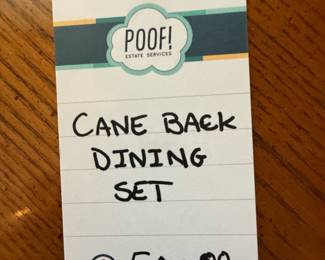 POOF!
ESTATE SERVICES
CANE BACK
DINING
SET